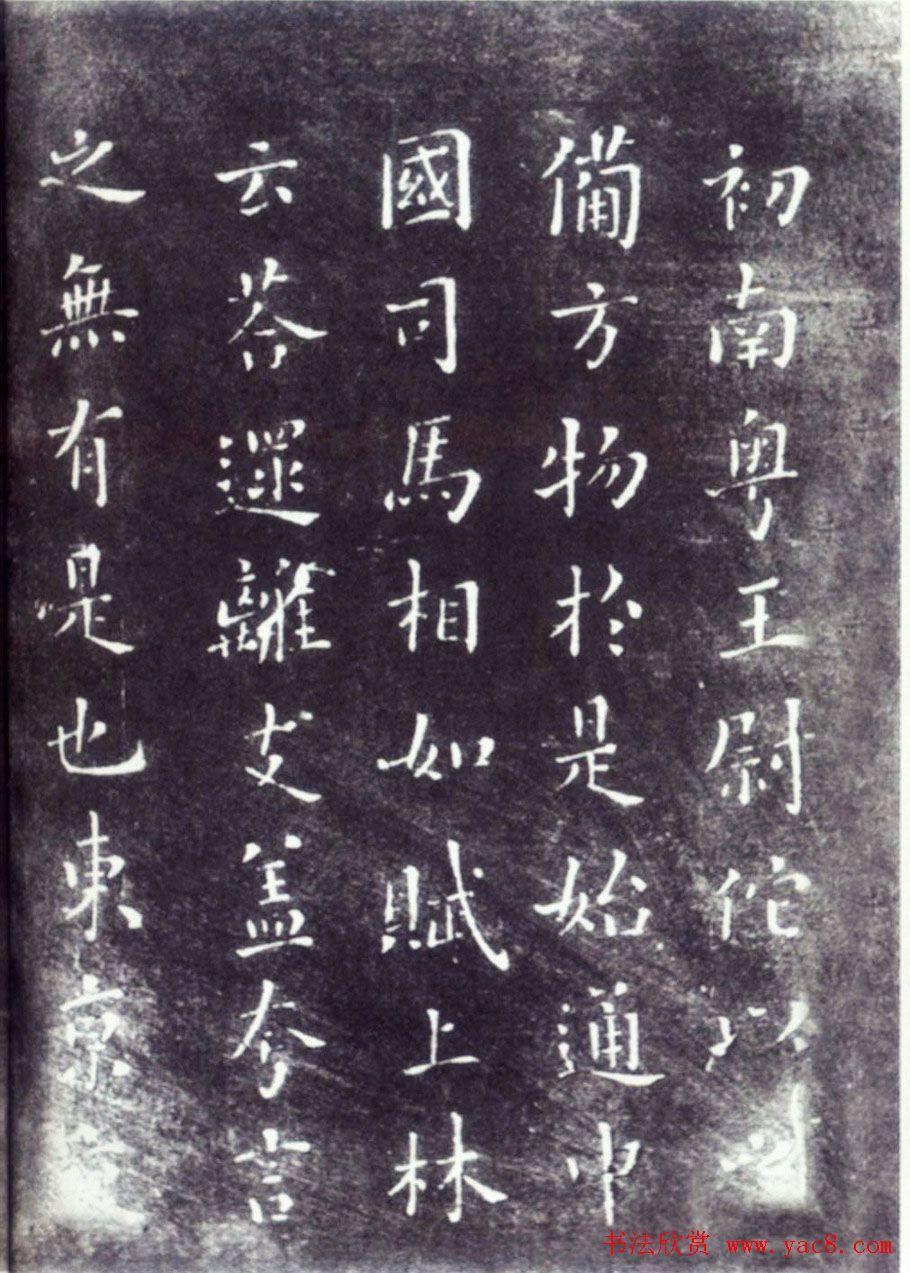 初南粤王尉佗以
備方物於是始通中
國司馬相如賦上林
云荅遝離支盖夸言
之無有是也東京
书法欣赏 www.yac8.com